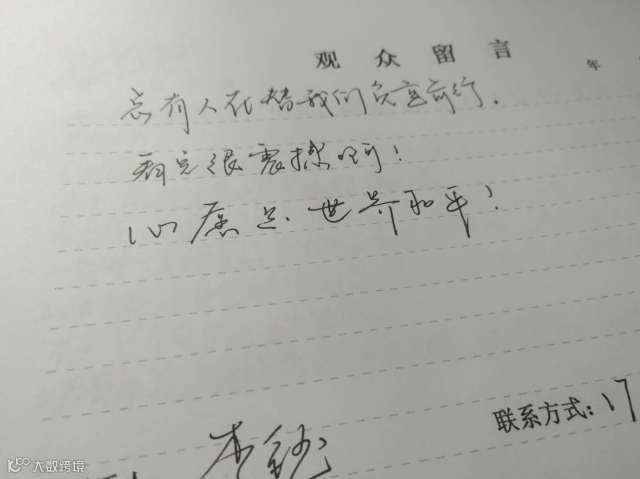 观众留言
年
总有人在替我们负重前行.
看完很震撼啊!
心愿是.世界和平!
联系方式:17
李
大数跨境